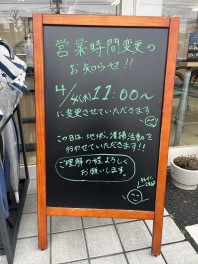 営業時間変更の
お知らせ!!
4/4(木)11:00〜
に変更させていただきます
この日は地域の清掃活動を
行わせていただきます
ご理解の程よろしく
お願いします